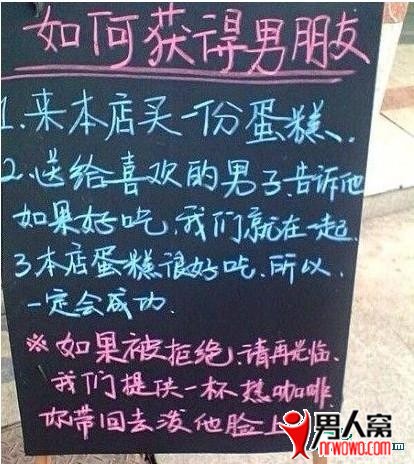 如何获得男朋友
1.来本店买一份蛋糕.
2.送给喜欢的男子.告诉他
如果好吃.我们就在一起.
3本店蛋糕很好吃.所以.
一定会成功.
※如果被拒绝.请再光临.
我们提供一杯热咖啡.
你带回去泼他脸上
男人窝
nrwowo.com